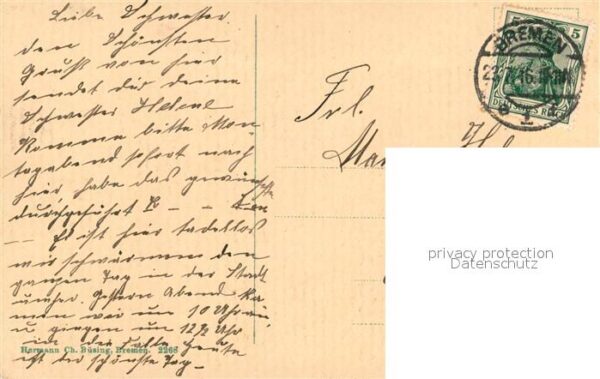 Liebe Schwester
den Schönsten
Gruß von hier
sendet dir deine
Schwester Helene
Komme bitte Mon-
tagabend sofort nach
hier, habe das gewünschte
durchgeführt
-- Es ist hier tadellos
wir schwärmen den
ganzen Tag in der Stadt
umher. Gestern Abend ka-
men wir um 10 Uhr an
u gingen um 12½ Uhr
in die Falle heute
ist der schönste Tag -
Hermann Ch. Büsing, Bremen. 2266
Frl.
BREMEN
5
DEUTSCHES REICH
privacy protection
Datenschutz